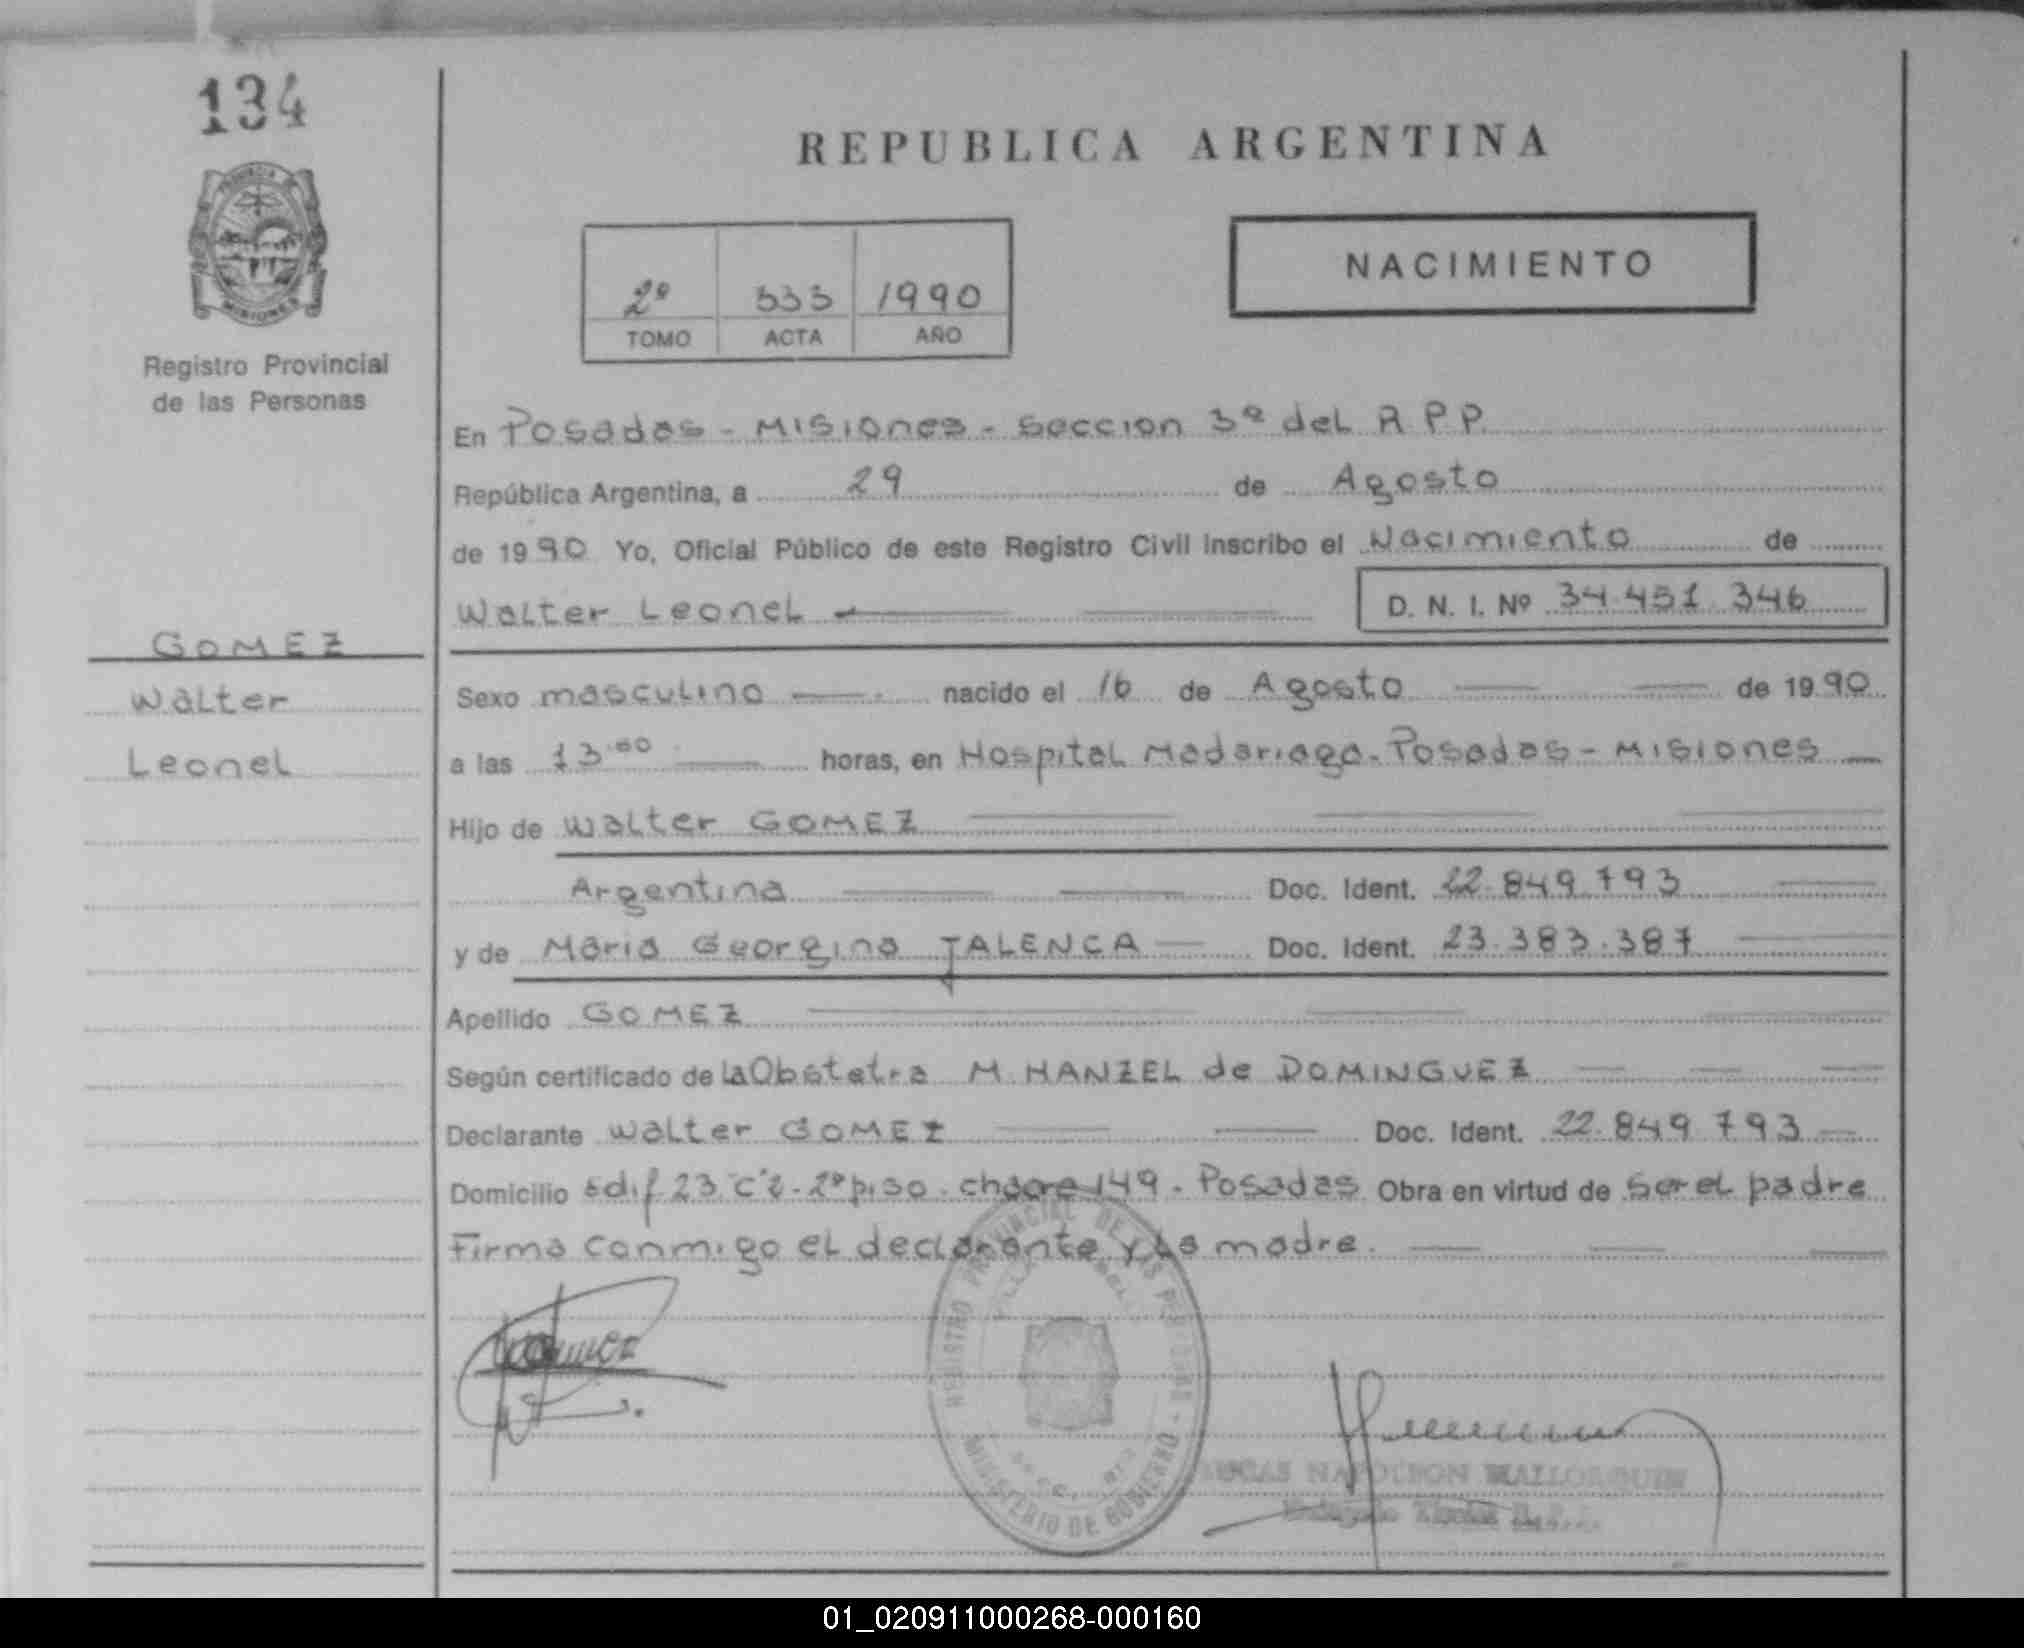 134
PROVINCIA DE
MISIONES
Registro Provincial
de las Personas
REPUBLICA ARGENTINA
2º 333 1990
TOMO ACTA AÑO
NACIMIENTO
En Posadas - Misiones - Seccion 3ª del R P P.
República Argentina, a 29 de Agosto
de 1990 Yo, Oficial Público de este Registro Civil inscribo el Nacimiento de
Walter Leonel D. N. I. Nº 34.451.346
GOMEZ
Walter
Leonel
Sexo masculino nacido el 16 de Agosto de 1990
a las 13.00 horas, en Hospital Madariaga - Posadas - Misiones
Hijo de Walter GOMEZ
Argentina Doc. Ident. 22.849.793
y de Maria Georgina JALENCA Doc. Ident. 23.383.387
Apellido GOMEZ
Según certificado de la Obstetra M. HANZEL de DOMINGUEZ
Declarante Walter GOMEZ Doc. Ident. 22.849.793
Domicilio edif 23 "C" 2º piso. chacra 149 - Posadas Obra en virtud de ser el padre
Firma conmigo el declarante y la madre.
REGISTRO PROVINCIAL DE LAS PERSONAS -
MINISTERIO DE GOBIERNO
LUCAS NAPOLEON MALLORQUIN
01_020911000268-000160